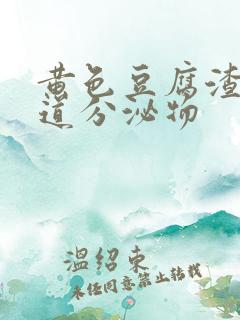 黄色豆腐渣
道分泌物
温绍东
未经同意禁止转载